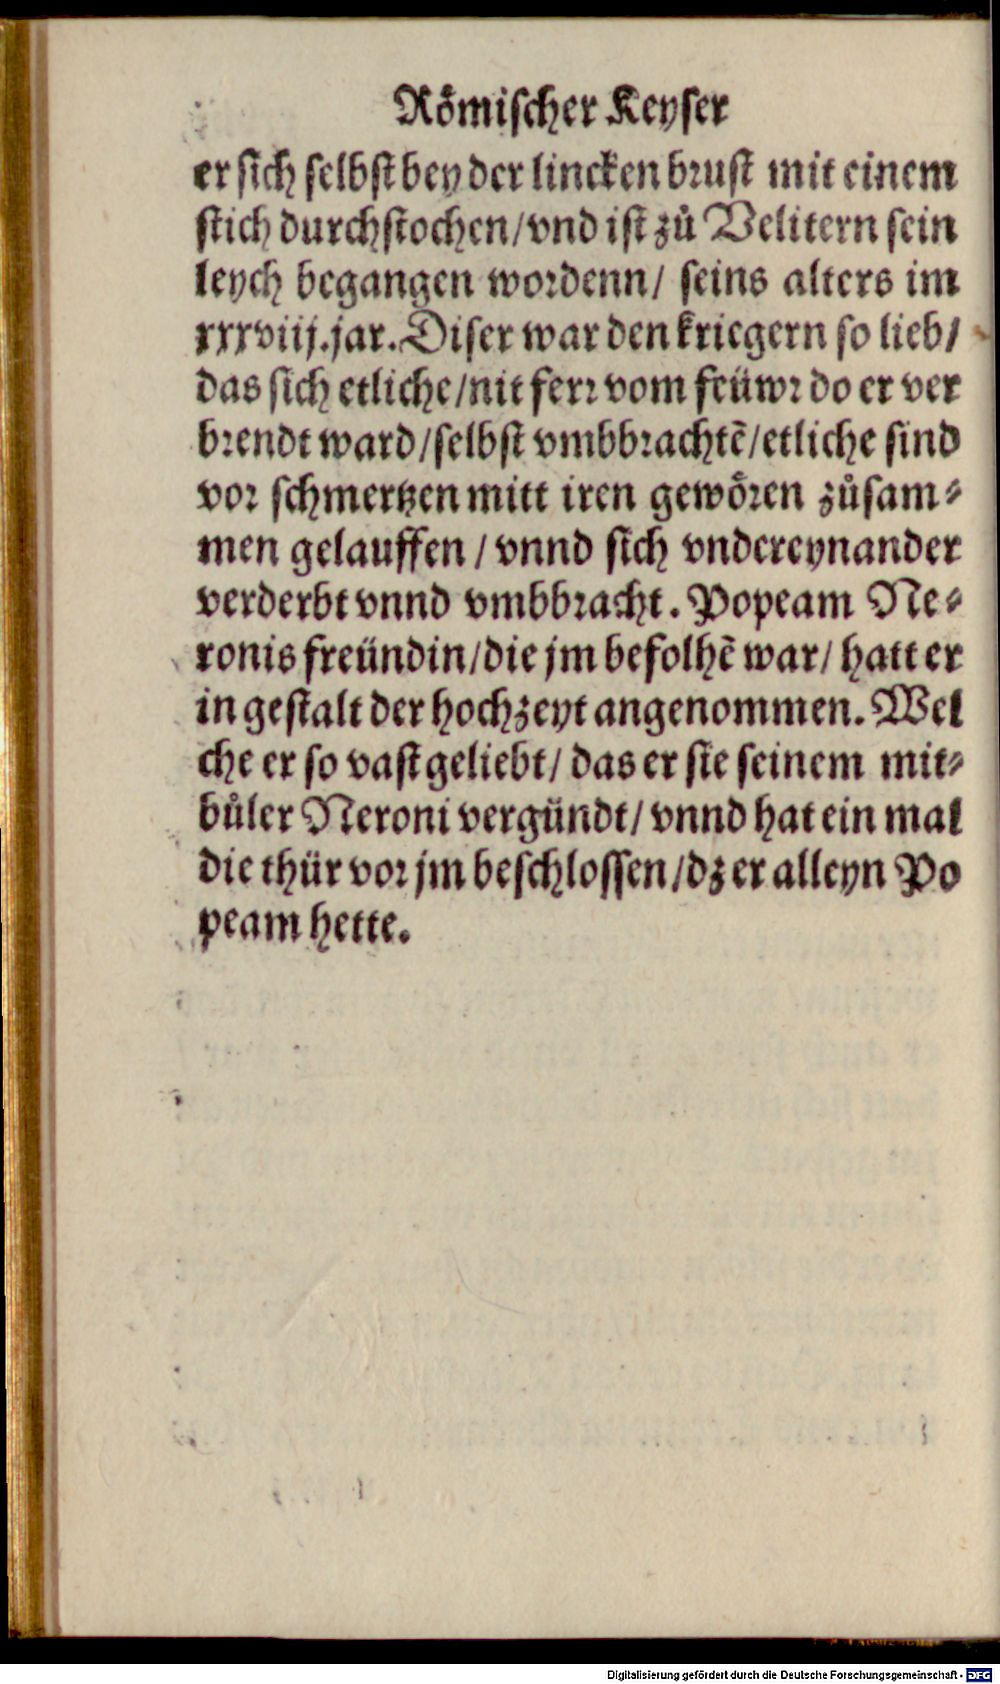 Roͤmischer Keyser
er sich selbst bey der lincken brust mit einem
stich durchstochen/vnd ist zuͦ Velitern sein
leych begangen wordenn/ seins alters im
xxxviij.jar. Diser war den kriegern so lieb/
das sich etliche/nit ferr vom feüwr do er ver
brendt ward/selbst vmbbrachtē/etliche sind
vor schmertzen mitt iren gewoͤren zuͦsam⸗
men gelauffen / vnnd sich vndereynander
verderbt vnnd vmbbracht. Popeam Ne⸗
ronis freündin/die jm befolhē war/ hatt er
in gestalt der hochzeyt angenommen. Wel
che er so vast geliebt/ das er sie seinem mit⸗
buͦler Neroni vergündt/ vnnd hat ein mal
die thür vor jm beschlossen/dz er alleyn Po
peam hette.
Digitalisierung gefördert durch die Deutsche Forschungsgemeinschaft - DFG